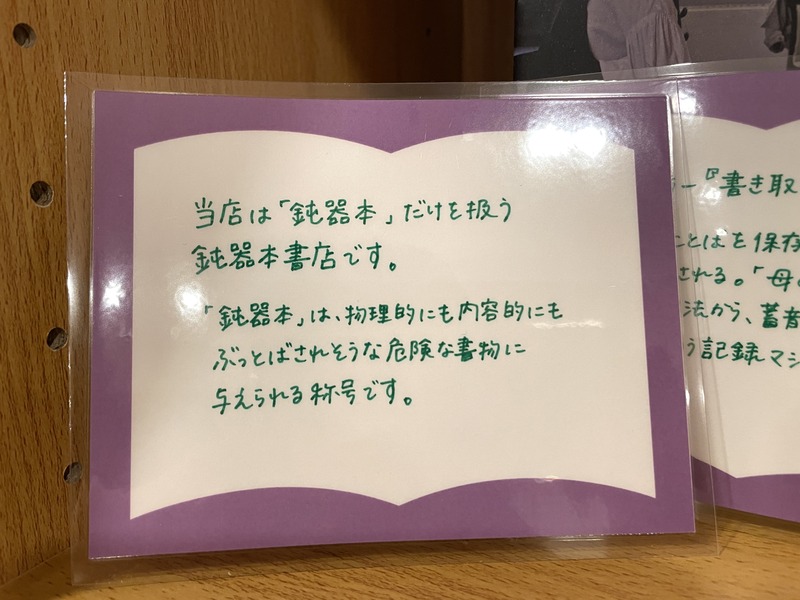 当店は「鈍器本」だけを扱う
鈍器本書店です。
「鈍器本」は、物理的にも内容的にも
ぶっとばされそうな危険な書物に
与えられる称号です。
『書き取
ことばを保存
される。「母
法から、蓄音
う記録マシ